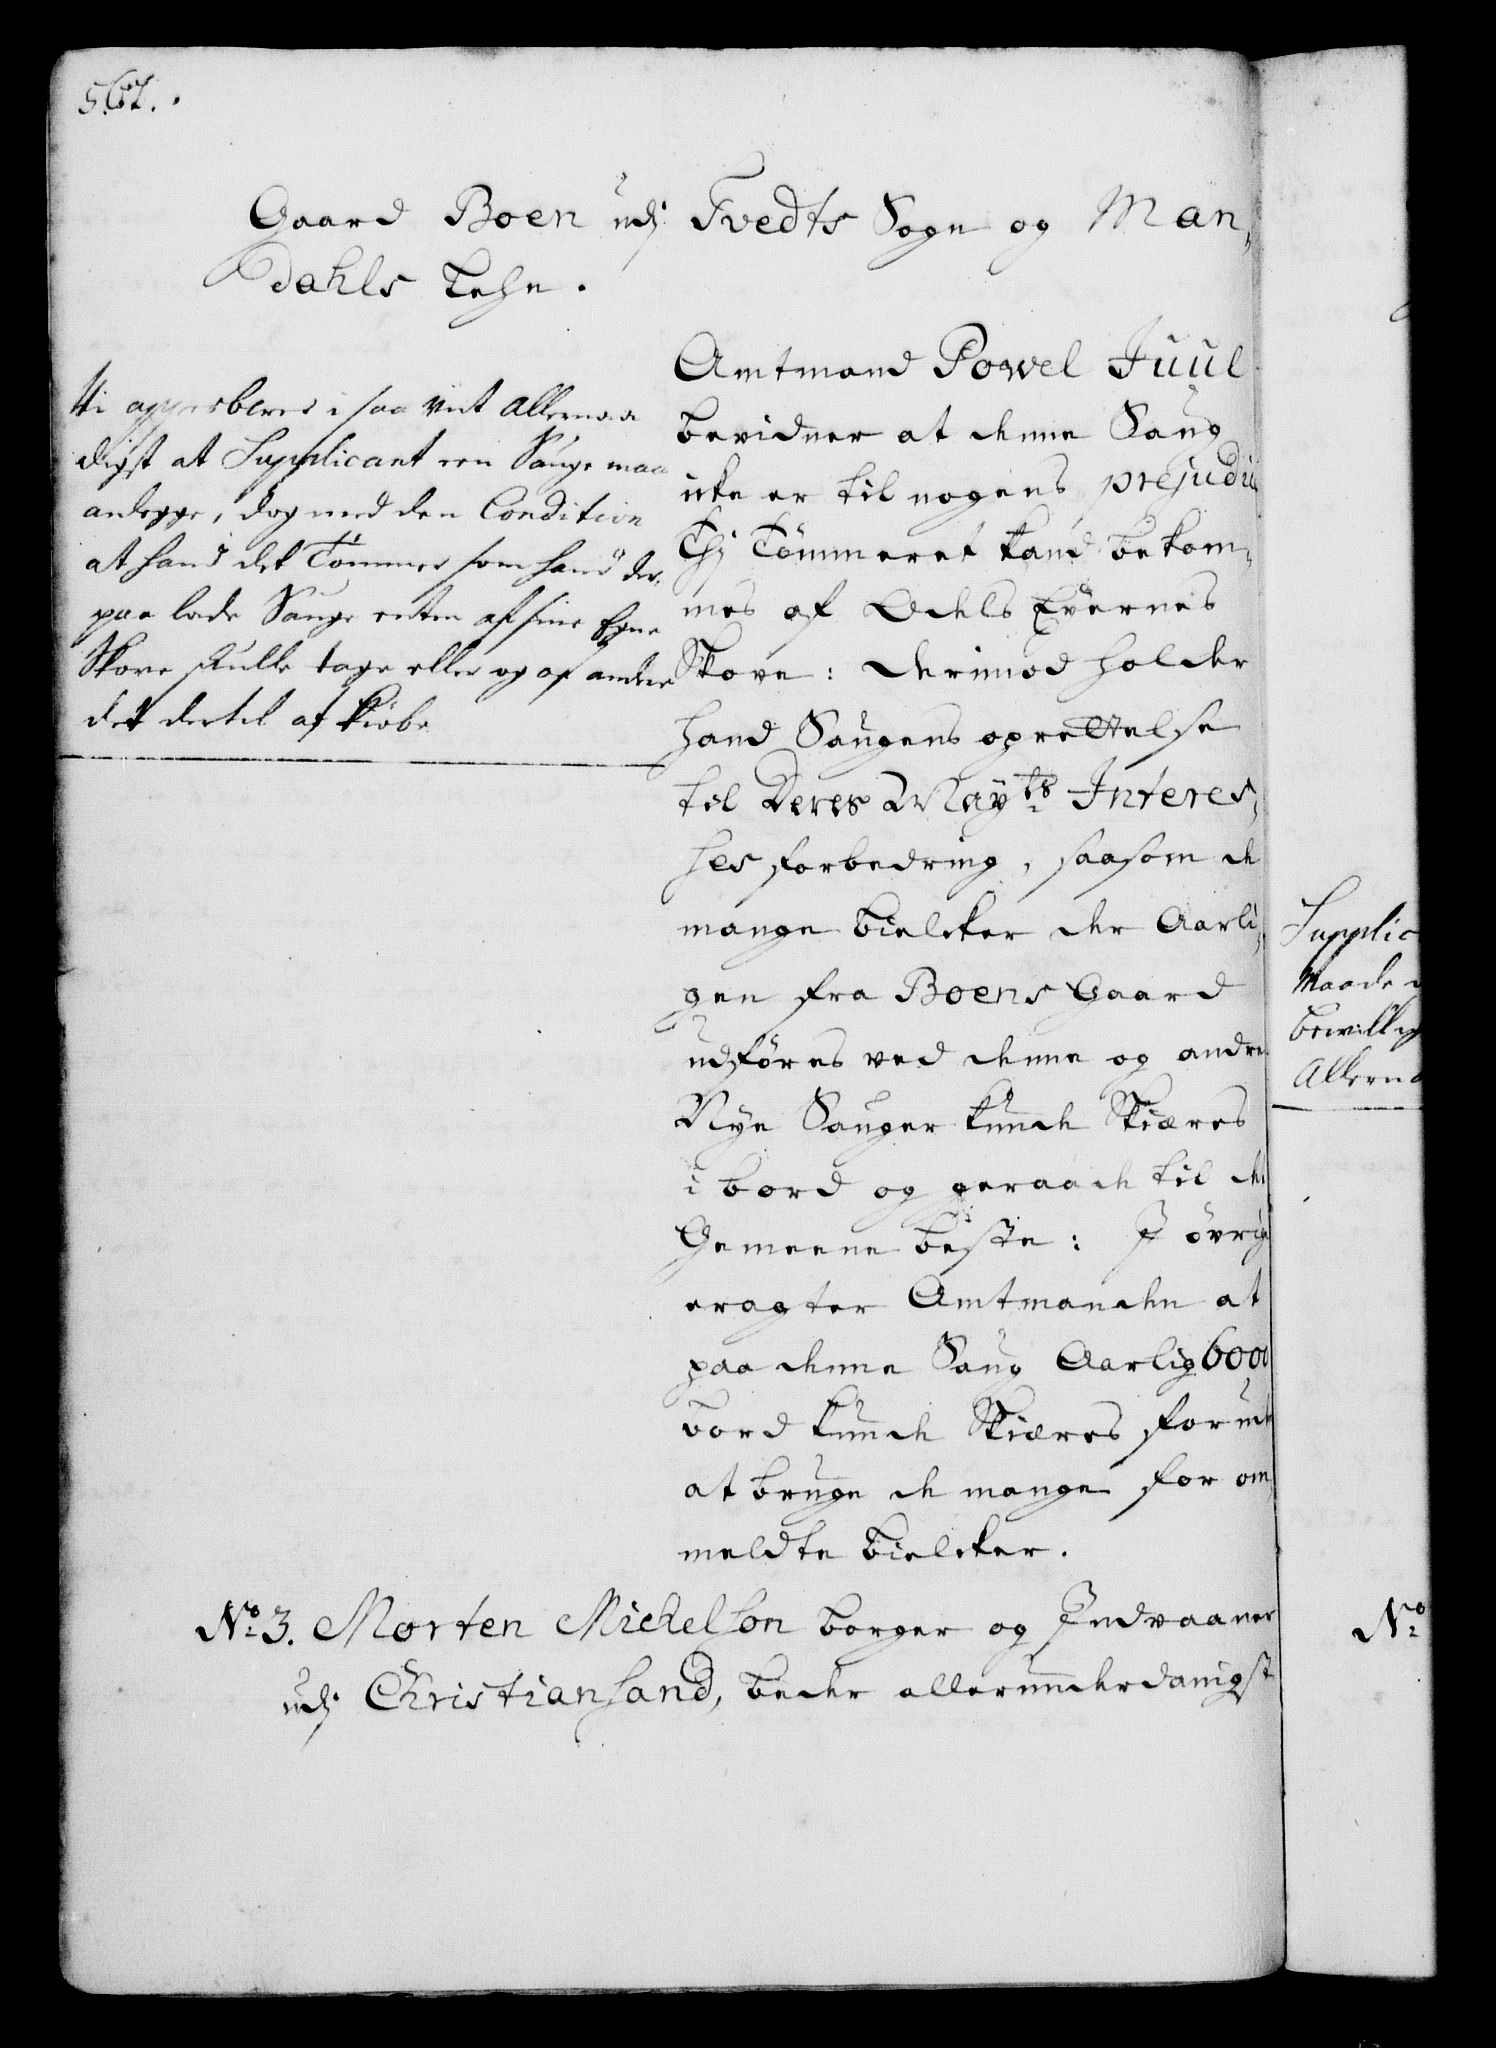 567.
Gaard Boen udj Tvedts Sogn og Man,
dahls Lehn.
Vi approberer i saa viit allernaa
digst at Supplicant een Sauge maa
anlegge, dog med den Condition
at hand det Tömmer som hand der,
paa lade Sauge enten af sine Egne
Skove skulle tage eller og af andre
det dertil at kiøbe
Amtmand Powel Juul
bevidner at denne Saug
icke er til nogens prejudice
Thj Tömmeret kand bekom,
mes af Odels Eyernes
Skove: derimod holder
hand Saugens oprettelse
til Deres Mayts Interes,
hes forbedring, saasom de
mange bielcker der Aarli,
gen fra Boens Gaard
udföres ved denne og andre
Nye Sauger kunde Skiæres
i bord og geraade til det
Gemeene beste: J övrig
eragter Amtmanden at
paa denne Saug Aarlig 6000
bord kunde Skiæres foruden
at bruge de mange for om,
meldte bielcker.
No 3. Morten Michelson borger og Indvaaner
udj Christiansand, beder allerunderdanigst
Supplic
Maade
bevillig
Allerna
No